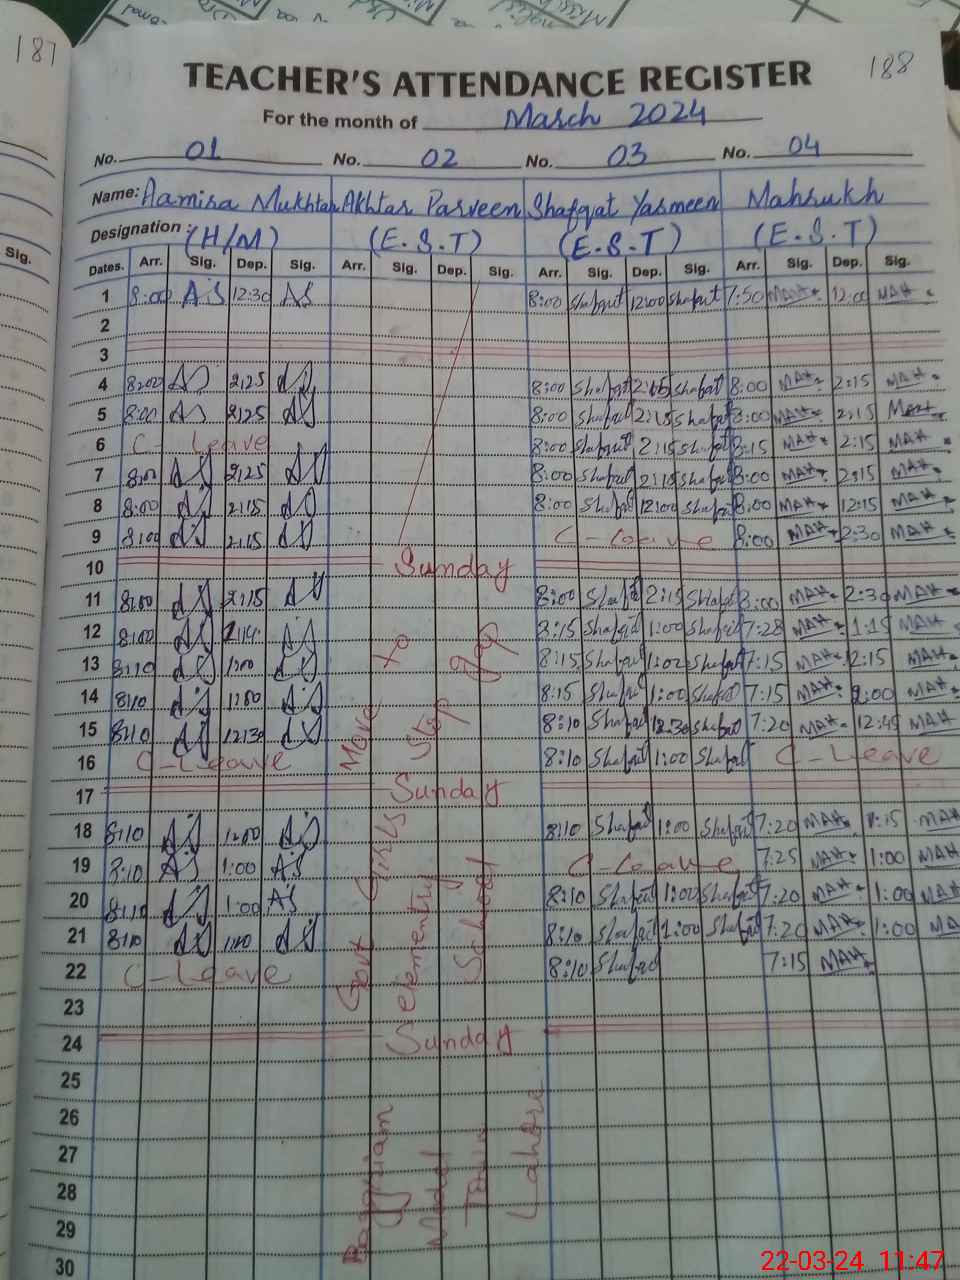 187
188
TEACHER'S ATTENDANCE REGISTER
For the month of March 2024
No. 01 No. 02 No. 03 No. 04
Name: Aamira Mukhtar Akhtar Parveen Shafqat Yasmeen Mahrukh
Designation: (H/M) (E.S.T) (E.S.T) (E.S.T)
Sig.
Dates. Arr. Sig. Dep. Sig. Arr. Sig. Dep. Sig. Arr. Sig. Dep. Sig. Arr. Sig. Dep. Sig.
1 8:00 AS 12:30 AS 8:00 Shafqat 12:00 Shafqat 7:50 MAH 12:00 MAH
2
3
4 8:00 AS 2:25 AS 8:00 Shafqat 2:15 Shafqat 8:00 MAH 2:15 MAH
5 8:00 AS 2:25 AS 8:00 Shafqat 2:15 Shafqat 8:00 MAH 2:15 MAH
6 C-Leave 8:00 Shafqat 2:15 Shafqat 8:15 MAH 2:15 MAH
7 8:00 AS 2:25 AS 8:00 Shafqat 2:15 Shafqat 8:00 MAH 2:15 MAH
8 8:00 AS 2:15 AS 8:00 Shafqat 12:00 Shafqat 8:00 MAH 12:15 MAH
9 8:00 AS 2:15 AS C-Leave 8:00 MAH 2:30 MAH
10 Sunday
11 8:00 AS 2:15 AS 8:00 Shafqat 2:15 Shafqat 8:00 MAH 2:30 MAH
12 8:00 AS AS 8:15 Shafqat 1:00 Shafqat 7:28 MAH 1:15 MAH
13 8:10 AS 1:00 AS 8:15 Shafqat 1:02 Shafqat 7:15 MAH 2:15 MAH
14 8:10 AS 1:00 AS 8:15 Shafqat 1:00 Shafqat 7:15 MAH 2:00 MAH
15 8:10 AS 12:30 AS 8:10 Shafqat 12:30 Shafqat 7:20 MAH 12:45 MAH
16 C-Leave 8:10 Shafqat 1:00 Shafqat C-Leave
17 Sunday
18 8:10 AS 1:00 AS 8:10 Shafqat 1:00 Shafqat 7:20 MAH 1:15 MAH
19 8:10 AS 1:00 AS C-Leave 7:25 MAH 1:00 MAH
20 8:10 AS 1:00 AS 8:10 Shafqat 1:00 Shafqat 7:20 MAH 1:00 MAH
21 8:10 AS 1:00 AS 8:10 Shafqat 1:00 Shafqat 7:20 MAH 1:00 MA
22 C-Leave 8:10 Shafqat 7:15 MAH
23
24 Sunday
25
26
27
28
29
30
Move to
Stop gap
Govt Girls
elementry
School
Model
Town
Lahore
22-03-24 11:47